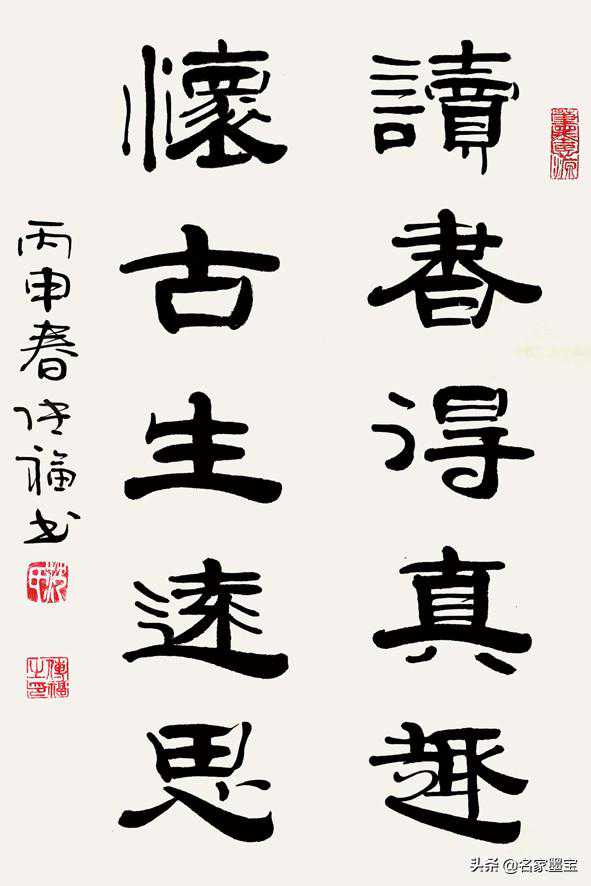 讀書得真趣
懷古生遠思
丙申春传福书
傳福之印
头条 @名家墨宝